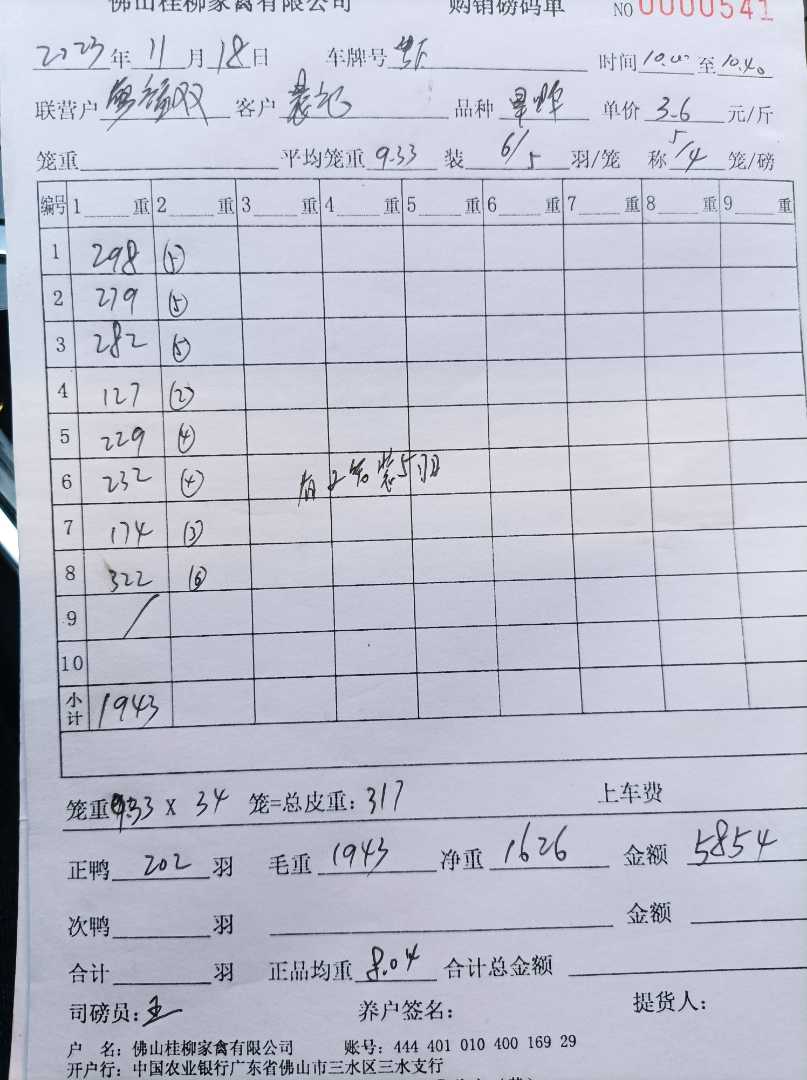 佛山桂柳家禽有限公司 购销磅码单 NO 0000541
2023年 11月 18日 车牌号 时间 10.00 至 10.40
联营户 双 客户 品种 单价 3.6 元/斤
笼重 平均笼重 9.33 装 6/5 羽/笼 称 5/4 笼/磅
编号 1 重 2 重 3 重 4 重 5 重 6 重 7 重 8 重 9 重
1 298 (5)
2 279 (5)
3 282 (5)
4 127 (2)
5 229 (4)
6 232 (4) 有2笼装5羽
7 174 (3)
8 322 (6)
9 /
10
小计 1943
笼重 9.33 X 34 笼=总皮重: 317 上车费
正鸭 202 羽 毛重 1943 净重 1626 金额 5854
次鸭 羽 金额
合计 羽 正品均重 8.04 合计总金额
司磅员: 王 养户签名: 提货人:
户 名: 佛山桂柳家禽有限公司 账号: 444 401 010 400 169 29
开户行: 中国农业银行广东省佛山市三水区三水支行